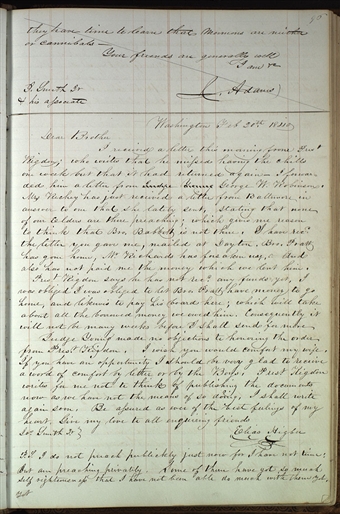 95
they have time to learn that Mormons are neither
or cannibals—
Your friends are generally well
I am &c
J. Smith Jr
& his associate
J. Adams
Washington Feb 21st 1840.
Dear Brother
I received a letter this morning from Prest
Rigdon; who writes that he missed having the chills
one week but that it had returned again— I forwar-
ded him a letter from Judge George W. Robinson.
Mrs. Richey has just received a letter from Baltimore in
answer to one that she lately sent, stating that none
of our Elders are there preaching; which give me reason
to think that Bro Babbit is not there. I have recd
the letter you gave me, mailed at Dayton, Bro. Pratt
has gone home, Mr Richards has
also has not paid me the money which we lent him.
Prest Rigdon says he has not recd any funds yet. I
was obliged to let Bro Pratt have money to go
home, and likewise to pay his board here; which will take
about all the borrowed money we owed him. Consequently it
will not be many weeks before I shall send for more
Judge Young made no objections to honoring the order
from Prest Rigdon. I wish you would comfort my wife
If you have an opportunity I should be very glad to have you
a word of comfort by letter or by the Boys. Prest Rigdon
writes for me not to think of publishing the documents
now as we have not the means of so doing. I shall write
again soon. Be assured as ever of the best feelings of my
heart. Give my love to all enquiring friends
Jos Smith Jr }
Elias Higbee
P.S. I do not preach publickly just now for I have not time:
But am preaching privately. Some of them have got so much
self righteousness that I have not been able do much with them yet,